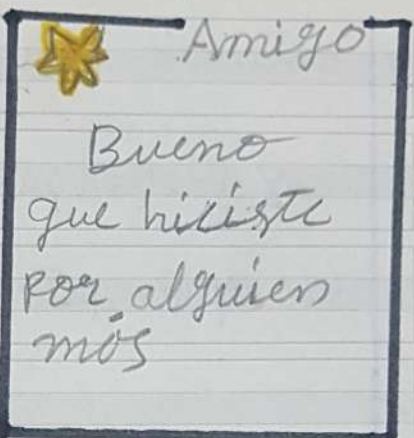 Amigo
Bueno
que hiciste
por alguien
más